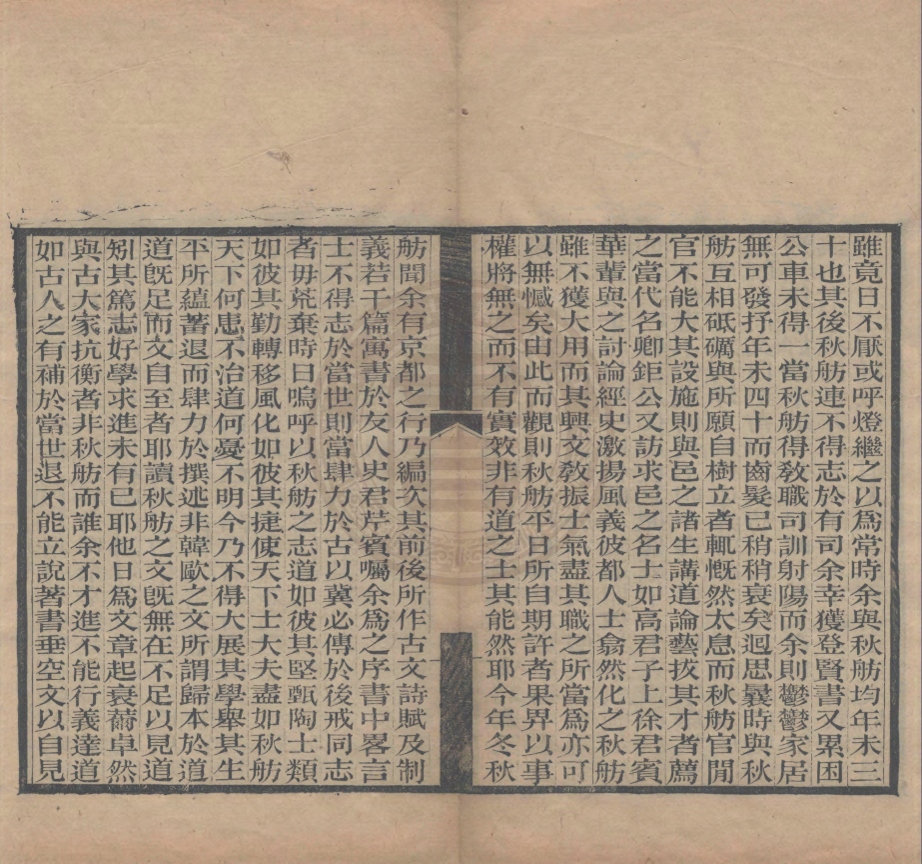 雖竟日不厭或呼燈繼之以爲常時余與秋舫均年未三
十也其後秋舫連不得志於有司余幸獲登賢書又累困
公車未得一當秋舫得教職司訓射陽而余則鬱鬱家居
無可發抒年未四十而齒髮已稍稍衰矣迴思曩時與秋
舫互相砥礪與所願自樹立者輒慨然太息而秋舫官閒
官不能大其設施則與邑之諸生講道論藝拔其才者薦
之當代名卿鉅公又訪求邑之名士如高君子上徐君賓
華輩與之討論經史激揚風義彼都人士翕然化之秋舫
雖不獲大用而其興文教振士氣盡其職之所當爲亦可
以無憾矣由此而觀則秋舫平日所自期許者果畀以事
權將無之而不有實效非有道之士其能然耶今年冬秋
舫聞余有京都之行乃編次其前後所作古文詩賦及制
義若干篇寓書於友人史君芹賓囑余爲之序書中畧言
士不得志於當世則當肆力於古以冀必傳於後戒同志
者毋荒棄時日嗚呼以秋舫之志道如彼其堅甄陶士類
如彼其勤轉移風化如彼其捷使天下士大夫盡如秋舫
天下何患不治道何憂不明今乃不得大展其學舉其生
平所蘊蓄退而肆力於撰述非韓歐之文所謂歸本於道
道旣足而文自至者耶讀秋舫之文旣無在不足以見道
矧其篤志好學求進未有已耶他日爲文章起衰薾卓然
與古大家抗衡者非秋舫而誰余不才進不能行義達道
如古人之有補於當世退不能立說著書垂空文以自見